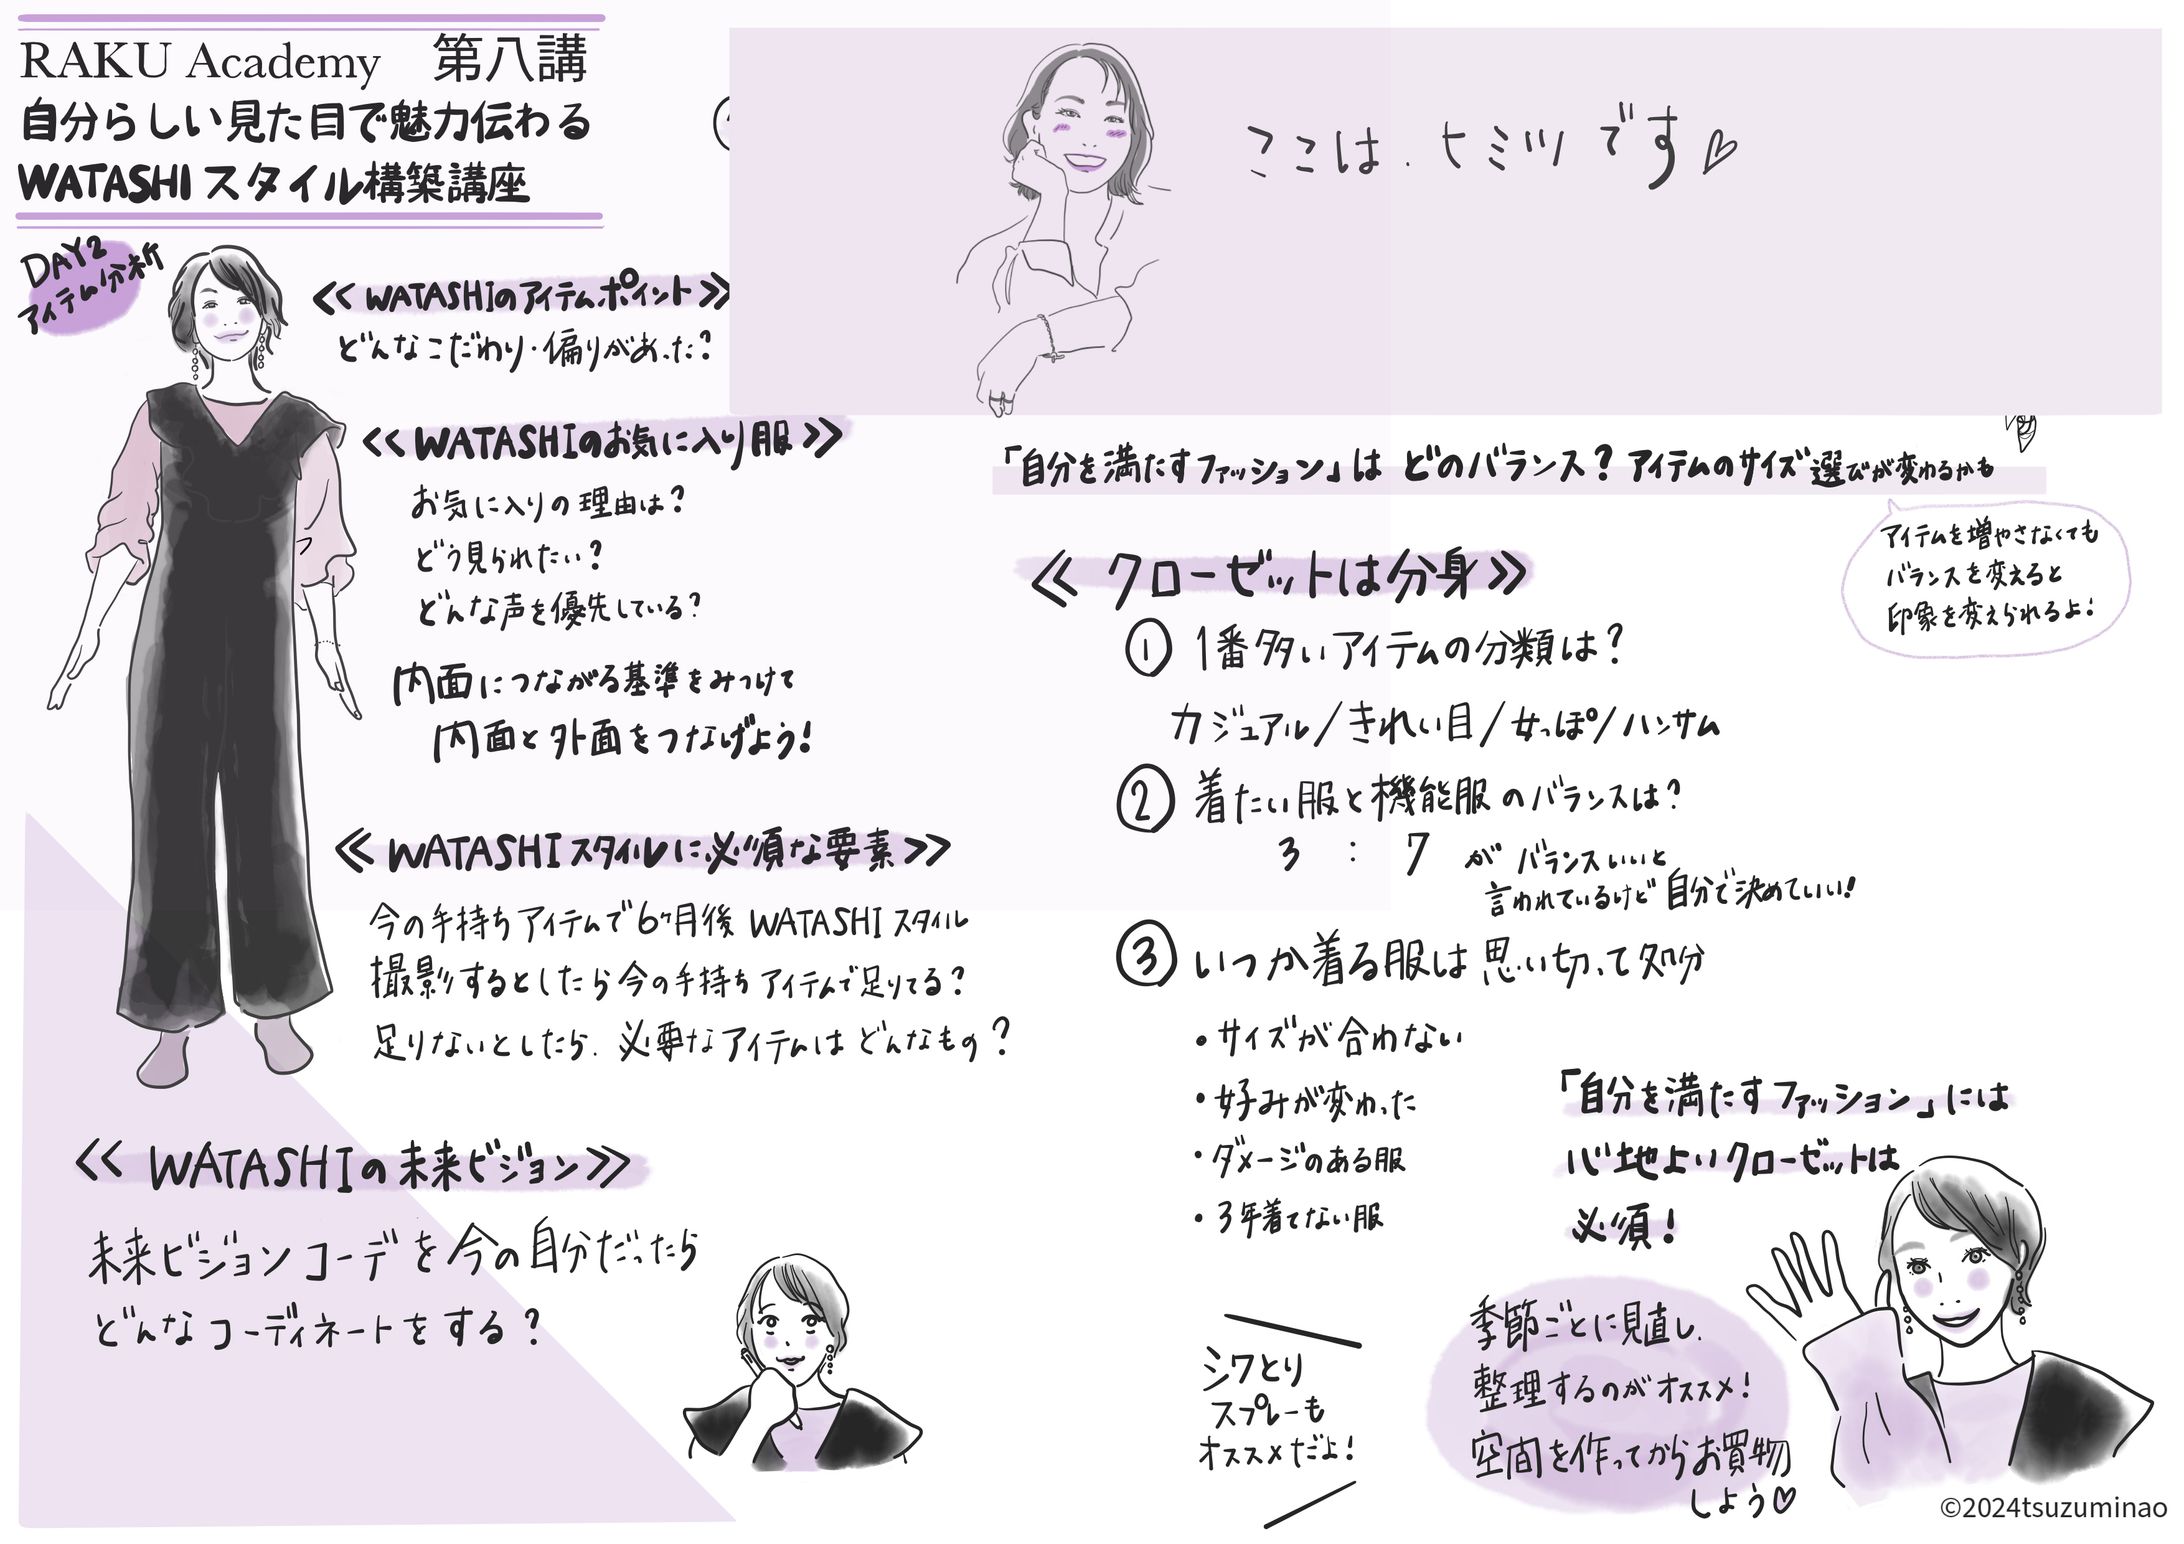 RAKU Academy 第八講
自分らしい見た目で魅力伝わる
WATASHI スタイル構築講座
DAY2
アイテム分析
≪ WATASHIのアイテムポイント ≫
どんなこだわり・偏りがあった?
≪ WATASHIのお気に入り服 ≫
お気に入りの理由は?
どう見られたい?
どんな声を優先している?
内面につながる基準をみつけて
内面と外面をつなげよう!
≪ WATASHIスタイルに必須な要素 ≫
今の手持ちアイテムで6ヶ月後 WATASHI スタイル
撮影するとしたら今の手持ちアイテムで足りてる?
足りないとしたら、必要なアイテムはどんなもの?
≪ WATASHIの未来ビジョン ≫
未来ビジョンコーデを今の自分だったら
どんなコーディネートをする?
ここは、ヒミツです♡
「自分を満たすファッション」は どのバランス? アイテムのサイズ選びが変わるかも
アイテムを増やさなくても
バランスを変えると
印象を変えられるよ!
≪ クローゼットは分身 ≫
① 1番多いアイテムの分類は?
カジュアル/きれい目/女っぽ/ハンサム
② 着たい服と機能服のバランスは?
3 : 7 が バランスいいと
言われているけど自分で決めていい!
③ いつか着る服は思い切って処分
・サイズが合わない
・好みが変わった
・ダメージのある服
・3年着てない服
「自分を満たすファッション」には
心地よいクローゼットは
必須!
シワとり
スプレーも
オススメだよ!
季節ごとに見直し、
整理するのがオススメ!
空間を作ってからお買物
しよう♡
©2024tsuzuminao